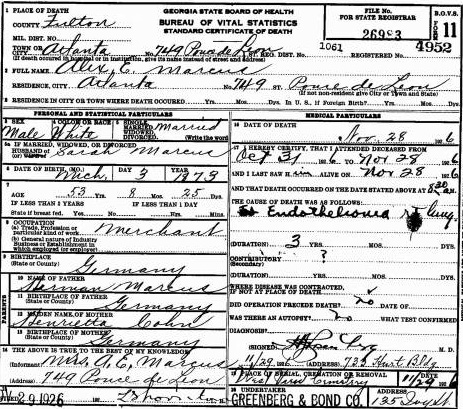 1 PLACE OF DEATH
GEORGIA STATE BOARD OF HEALTH
FILE No.
FOR STATE REGISTRAR
B.O.V.S.
COUNTY Fulton
BUREAU OF VITAL STATISTICS
STANDARD CERTIFICATE OF DEATH
26983
11
MIL. DIST.
TOWN OR CITY Atlanta No. 749 Ponce de Leon ST.
1061
REGISTERED No. 4952
(If death occurred in hospital or institution, give its name instead of street and address)
2 FULL NAME Alex C. Marcus
RESIDENCE, CITY Atlanta No. 749 ST. Ponce de Leon
(If non-resident give City or Town and State)
RESIDENCE IN CITY OR TOWN WHERE DEATH OCCURRED Yrs. Mos. Days. In U. S., if Foreign Birth? Yrs. Mos. Dys.
PERSONAL AND STATISTICAL PARTICULARS
MEDICAL PARTICULARS
3 SEX Male
4 COLOR OR RACE White
5 SINGLE, MARRIED, WIDOWED, DIVORCED Married
16 DATE OF DEATH
Nov. 28 1926
5a IF MARRIED, WIDOWED OR DIVORCED
HUSBAND of Sarah Marcus
17 I HEREBY CERTIFY, THAT I ATTENDED DECEASED FROM
Oct 31 1926 TO Nov 28 1926
AND I LAST SAW H im ALIVE ON Nov 28 1926
6 DATE OF BIRTH Mch. 3 1873
AND THAT DEATH OCCURRED ON THE DATE STATED ABOVE AT 8
7 53 YRS. 8 MOS. 25 DYS.
IF LESS THAN 2 YEARS IF LESS THAN 1 DAY
State if breast fed. Yrs. Mos. Dys. Hrs. Min.
THE CAUSE OF DEATH WAS AS FOLLOWS
Endothelioma rt lung.
8 OCCUPATION
(a) Trade, Profession or particular kind of work
(b) General nature of Industry Business or Establishment in which employed or employer)
Merchant
(DURATION) 3 YRS. MOS. DYS.
CONTRIBUTORY ?
(Secondary)
9 BIRTHPLACE
(State or County) Germany
(DURATION) YRS. MOS. DYS.
PARENTS
10 NAME OF FATHER Herman Marcus
WHERE DISEASE WAS CONTRACTED,
IF NOT AT PLACE OF DEATH
11 BIRTHPLACE OF FATHER
(State or County) Germany
DID OPERATION PRECEDE DEATH? No
12 MAIDEN NAME OF MOTHER Henrietta Cohn
WAS THERE AN AUTOPSY? No WHAT TEST CONFIRMED
DIAGNOSIS?
13 BIRTHPLACE OF MOTHER
(State or County) Germany
(SIGNED) M. D.
14 THE ABOVE IS TRUE TO THE BEST OF MY KNOWLEDGE
(Informant) Mrs. A. C. Marcus
749 Ponce de Leon
11/29 1926 723 Hurt Bldg
19 PLACE OF BURIAL, CREMATION OR REMOVAL
Cemetery 11/29 1926
29 1926
20 UNDERTAKER
GREENBERG & BOND CO. 135 Ivy St